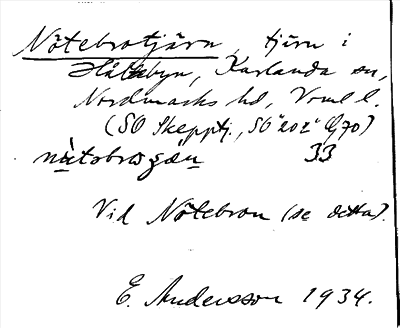 Nötebrotjärn, tjärn i
Hålebyn, Karlanda sn,
Nordmarks hd, Vrml l.
(SO Skepptj., SO "202" G70)
33
Vid Nötebron (se detta).
E. Andersson 1934.